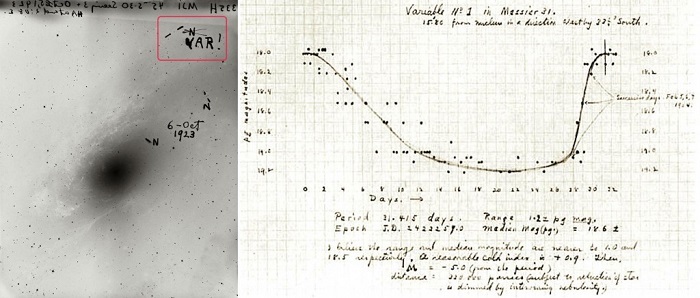 N
VAR!
N
6-Oct
1923
N
Variable No 1 in Messier 31.
15.'86 from nucleus in a direction
South.
PE magnitudes
18.0
18.2
18.4
18.6
18.8
19.0
19.2
18.0
18.2
18.4
18.6
18.8
19.0
19.2
Successive days. Feb 5, 6, 7
1924
0 2 4 6 8 10 12 14 16 18 20 22 24 26 28 30 32
Days. →
Period 31.415 days. Range 1.2± pg mag.
Epoch J.D. 2423259.0 Median Mag(pg) = 18.6 ±
I believe the range and median magnitude are nearer to 1.0 and
18.5 respectively. A reasonable color index is +0.9. Then,
M = -5.0 (from the period)
distance = parsecs (subject to reduction if star
is dimmed by intervening nebulosity)